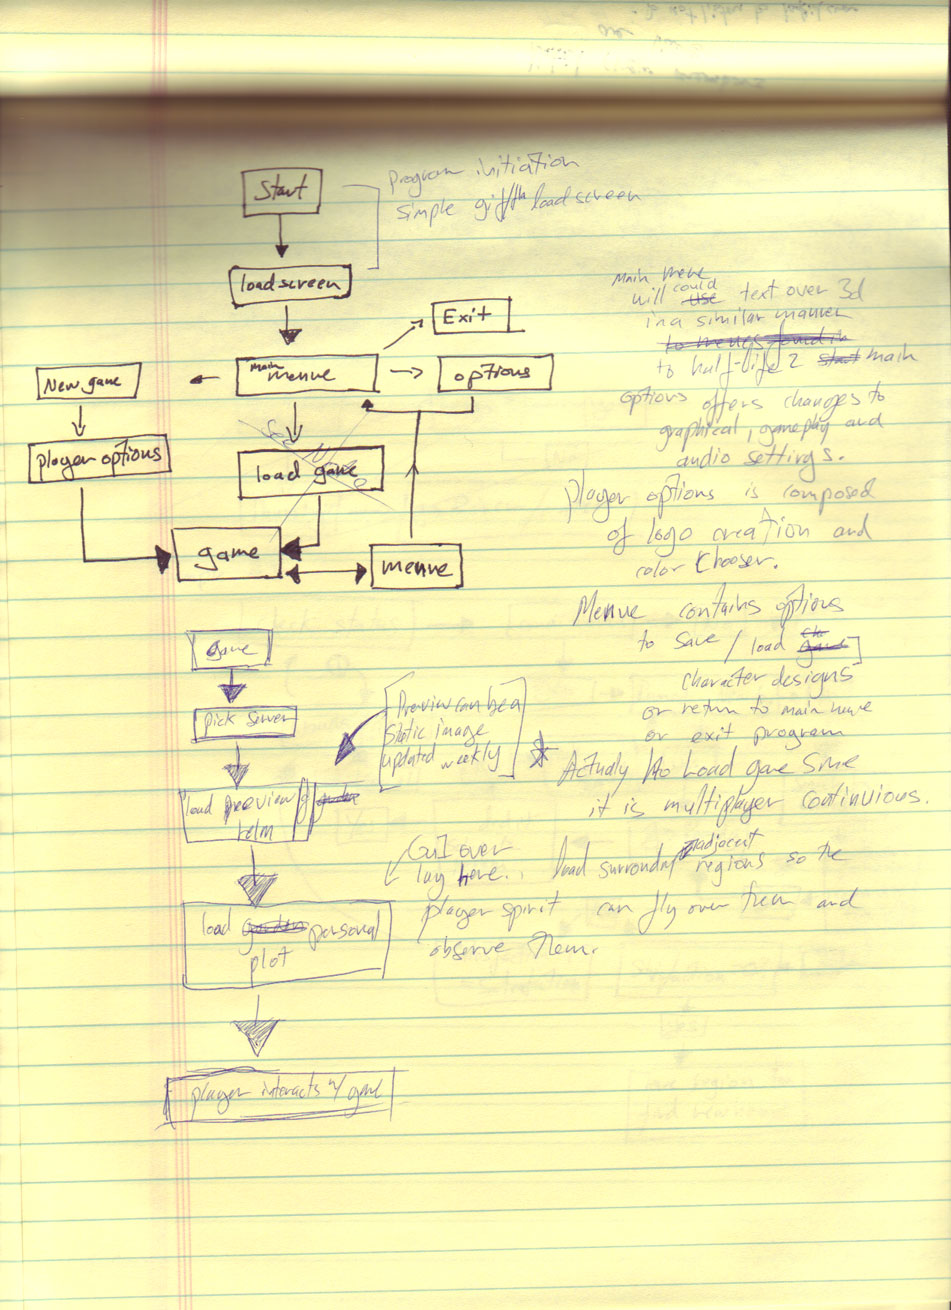 Start
Program initiation
simple gif/ load screen
load screen
Exit
Main
Menue
options
New game
player options
load game
game
menue
Main menue
will could use text over 3d
in a similar manner
to menues found in
to half-life 2 start main
options offers changes to
graphical, gameplay and
audio settings.
player options is composed
of logo creation and
color chooser.
Menue contains options
to save / load
character designs
or return to main menue
or exit program
* Actually No Load game since
it is multiplayer continuious.
game
pick server
Preview can be a
static image
updated weekly
load preview
garden
GUI over
lay here..
load surrounding adjacent regions so the
player spirit can fly over them and
observe them.
load garden personal
plot
player interacts w/ game